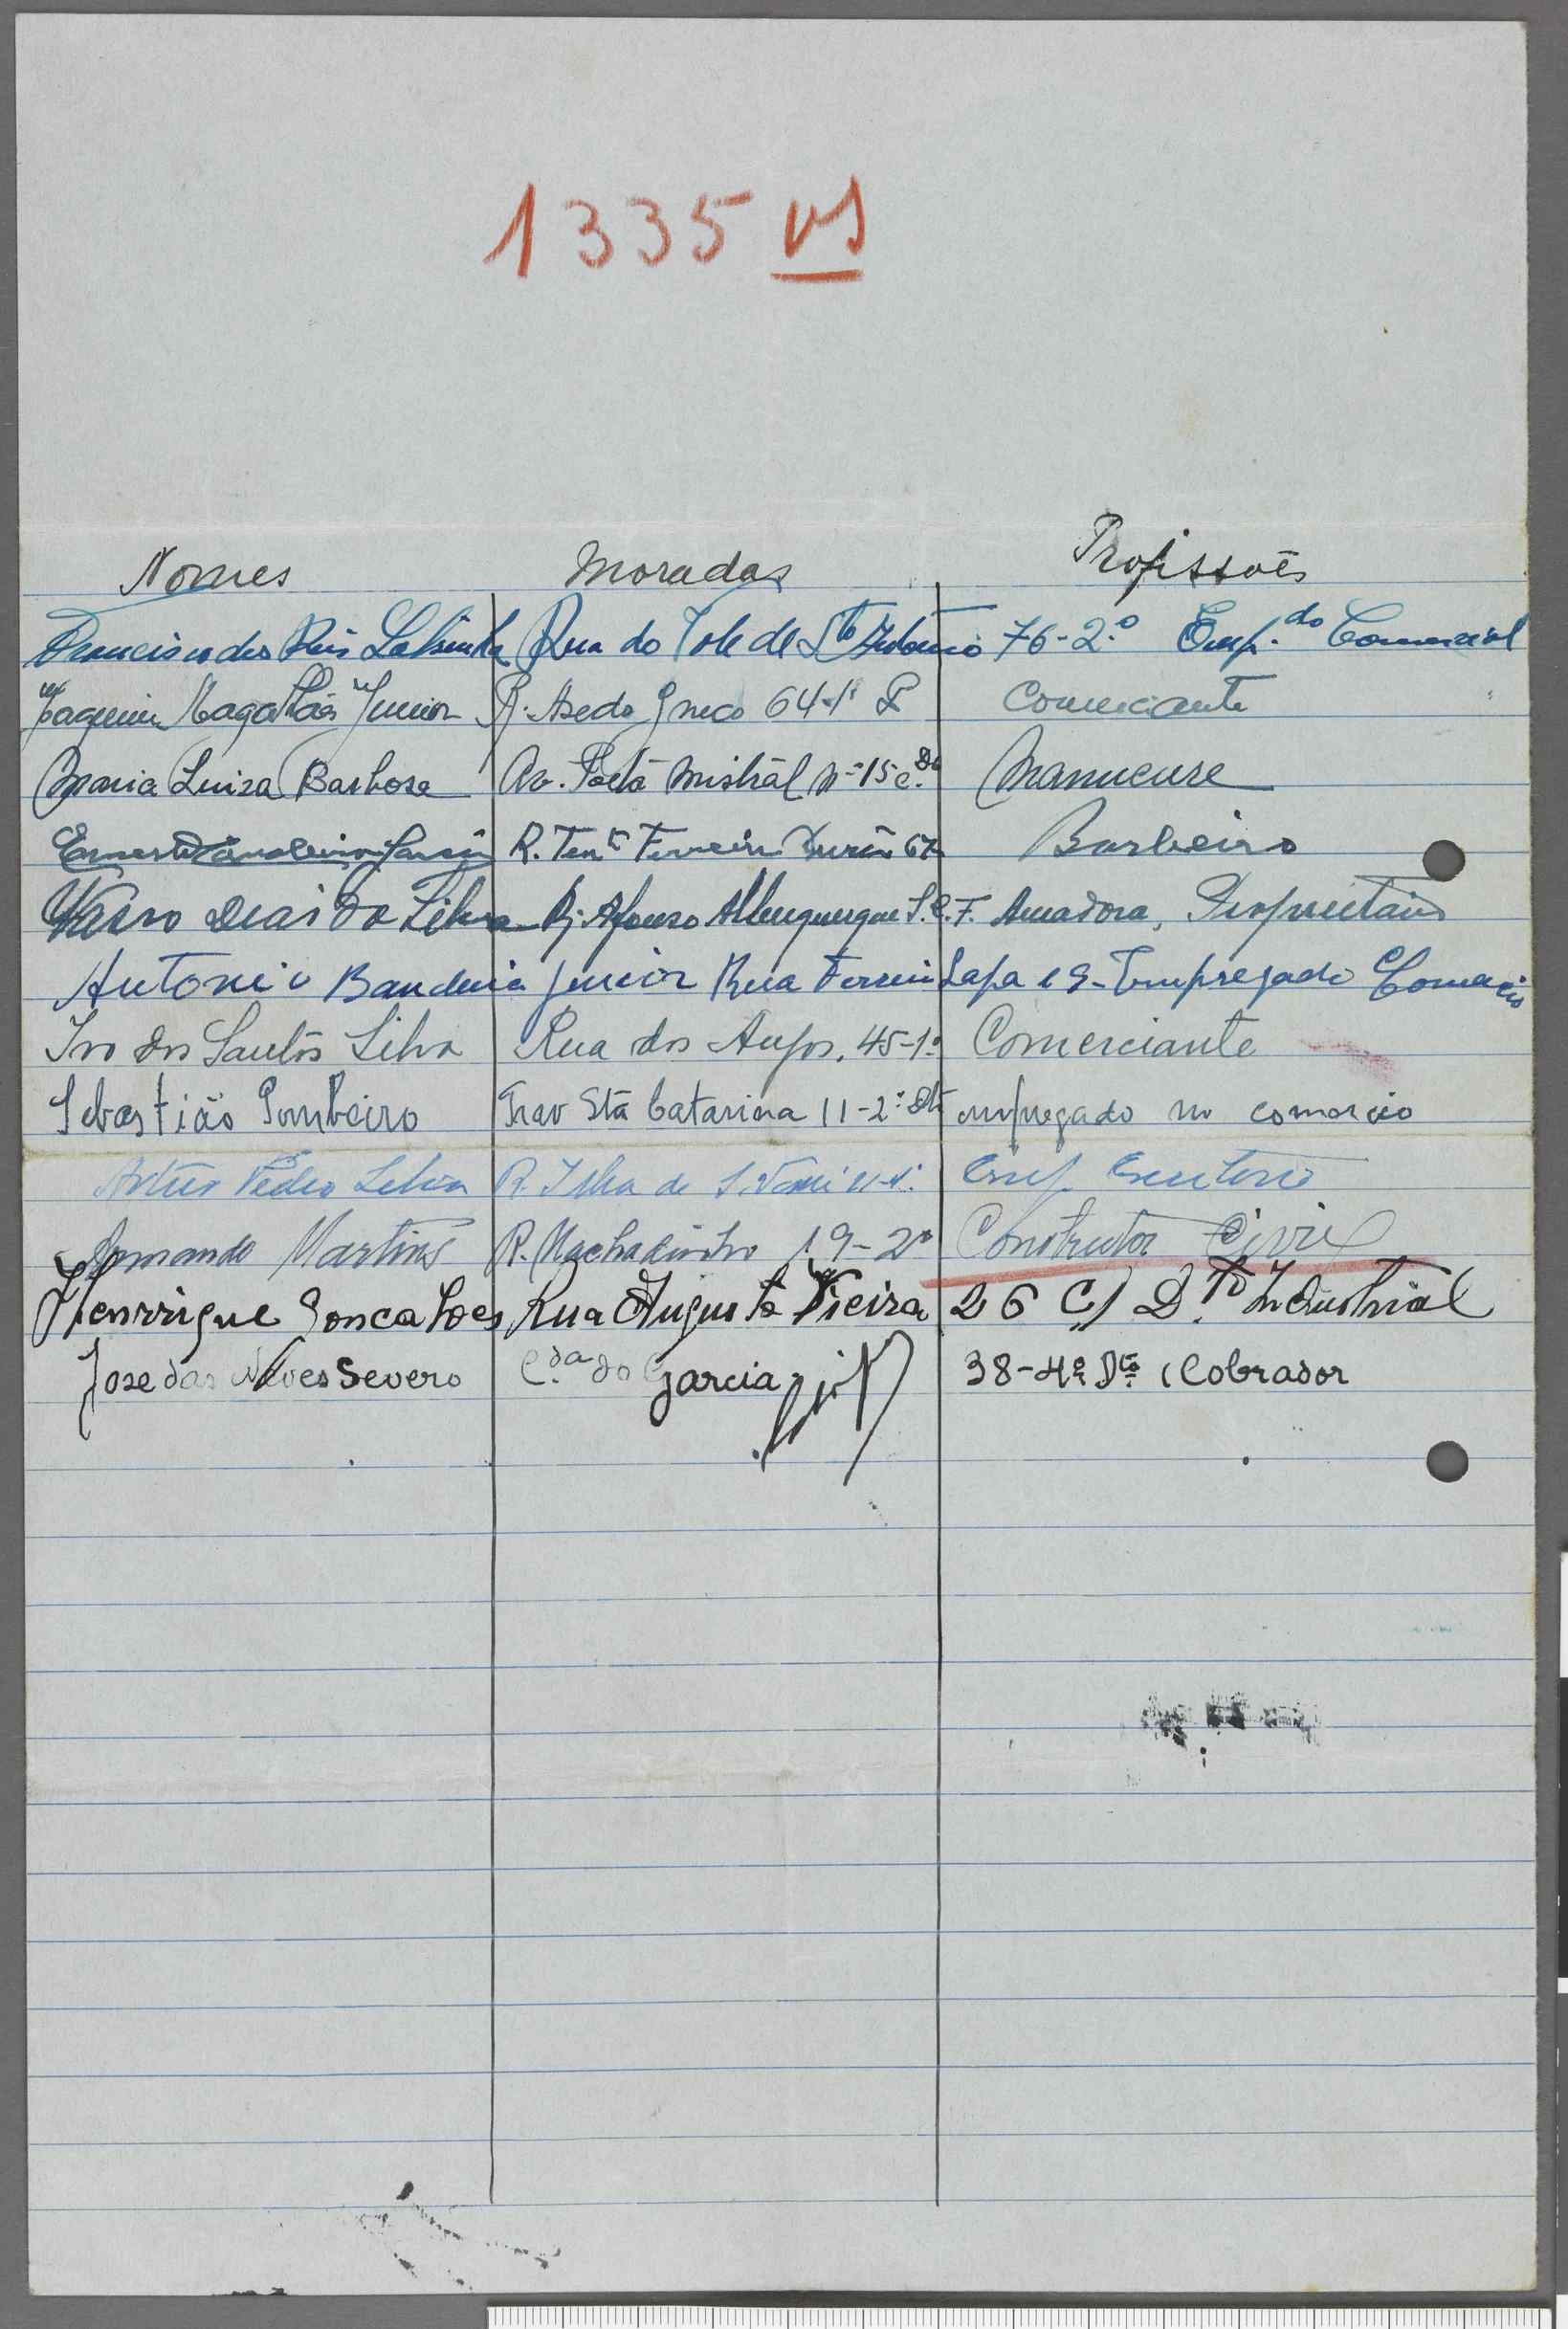 1335 vs
Nomes Moradas Profissoẽs
Francisco dos Reis Rua do Vole de Sto Antonio 76-2.º Emp.do Comercial
Joaquim Magalhães Junior R. Asedo Gneco 64-1º Comerciante
Maria Luiza Barbosa Av. Poetā Mistrāl Nº 15 c. Dto Manucure
Ernesto R. Tente Ferreira Durão 67 Barbeiro
Vasco Dias da Silva R. Afonso Albuquerque Amadora, Proprietário
Antonio Bandeira Junior Rua Ferreira Lapa 19- Empregado Comercio
Ivo dos Santos Silva Rua dos Anjos, 45-1º Comerciante
Sebastião Pombeiro Trav Stª Catarina 11-2º Dto empregado no comercio
Artur Pedro Silva R. Ilha de S. Tomé 11-1º Emp. Escritorio
Armando Martins R. Machadinho 19-2º Construtor Civil
Henrrique Goncalves Rua Augusto Vieira 26 C/ D.to Industrial
Jose das Neves Severo C.da do Garcia 38-4º Dto Cobrador